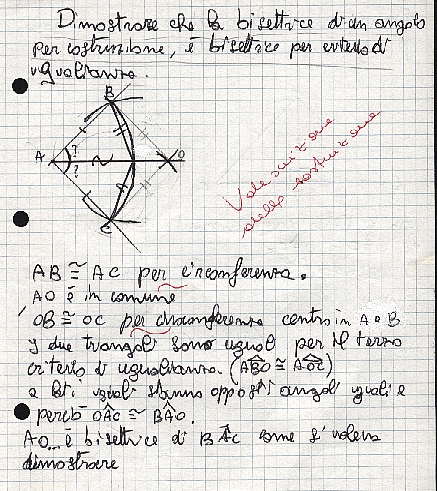 Dimostrare che la bisettrice di un angolo
per costruzione, è bisettrice per criterio di
uguaglianza.
B
A
?
?
O
C
Vale
della sostruzione
AB ≅ AC per circonferenza.
AO è in comune
OB ≅ OC per circonferenza centro in A e B
I due triangoli sono uguali per il terzo
criterio di uguaglianza. (AB̂O ≅ AÔC)
a lati uguali stanno opposti angoli uguali e
perciò OÂC ≅ BÂO.
AO è bisettrice di BÂC come si voleva
dimostrare